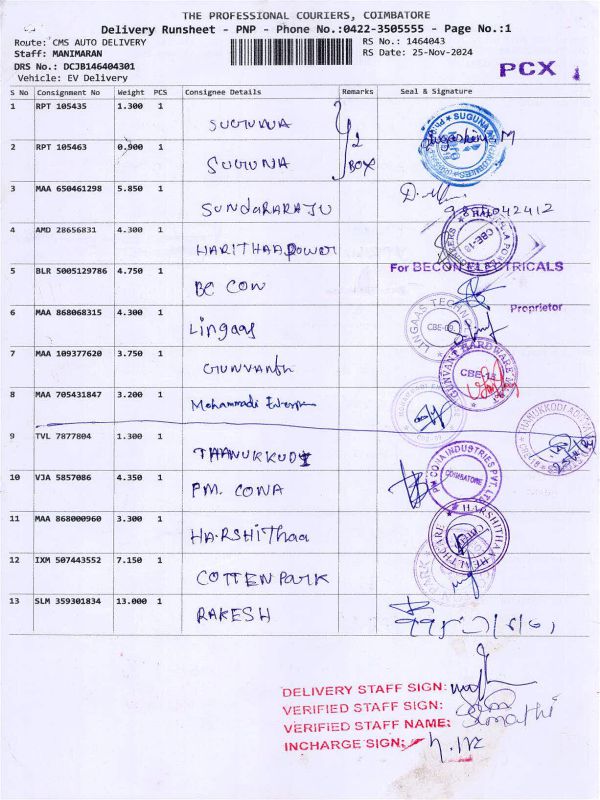 THE PROFESSIONAL COURIERS, COIMBATORE
Delivery Runsheet - PNP - Phone No.:0422-3505555 - Page No.:1
Route: CMS AUTO DELIVERY
RS No.: 1464043
Staff: MANIMARAN
RS Date: 25-Nov-2024
DRS No.: DCJB146404301
Vehicle: EV Delivery
PCX
S No Consignment No Weight PCS Consignee Details Remarks Seal & Signature
1 RPT 105435 1.300 1 SUGUNA
2 RPT 105463 0.900 1 SUGUNA 2 BOX
3 MAA 650461298 5.850 1 SUNDARARAJU
4 AMD 28656831 4.300 1 HARITHAA POWER
5 BLR 5005129786 4.750 1 BE CON For BECON ELECTRICALS
Proprietor
6 MAA 868068315 4.300 1 Lingaas LINGAAS CBE-09
7 MAA 109377620 3.750 1 GUNVANTH GUNVANT HARDWARE CBE-18
8 MAA 705431847 3.200 1 Mohammadi
9 TVL 7877804 1.300 1 THANUKKUDI
10 VJA 5857086 4.350 1 PM. CONA PM CONA INDUSTRIES PVT. LTD COIMBATORE
11 MAA 868000960 3.300 1 HARSHITHAA HARSHITHAA HEALTHCARE
12 IXM 507443552 7.150 1 COTTEN PARK
13 SLM 359301834 13.000 1 RAKESH
DELIVERY STAFF SIGN:
VERIFIED STAFF SIGN:
VERIFIED STAFF NAME:
INCHARGE SIGN: